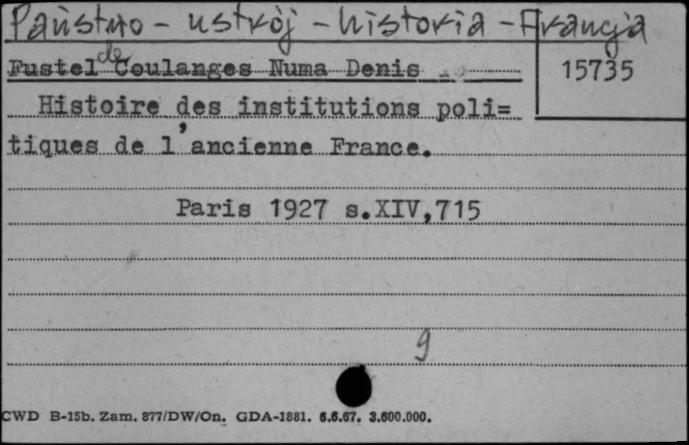 Państwo - ustrój - historia - Francja
Fustel de Coulanges Numa Denis
15735
Histoire des institutions poli=
tiques de l'ancienne France.
Paris 1927 s.XIV,715
9
CWD B-15b. Zam. 877/DW/On. GDA-1881. 6.6.67. 3.600.000.